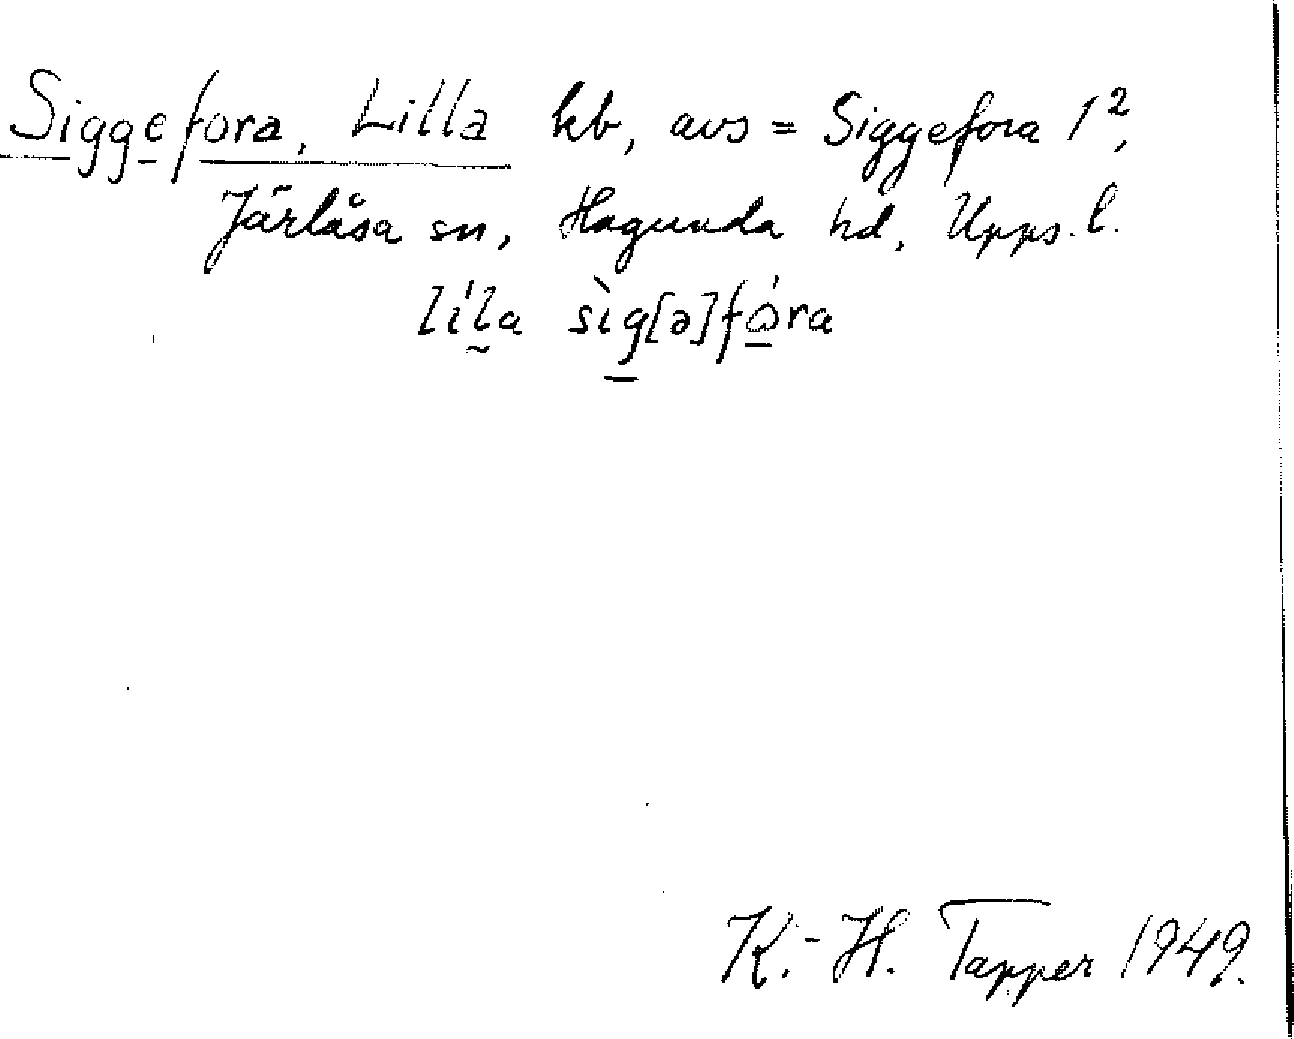 Siggefora, Lilla kb, avs = Siggefora 1²,
Järlåsa sn, Hagunda hd, Upps. l.
lí́l̰a sìg̲[ə]fó̲ra
K.-H. Tapper 1949.